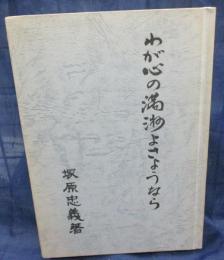 わが心の満洲よさようなら
塚原忠義著